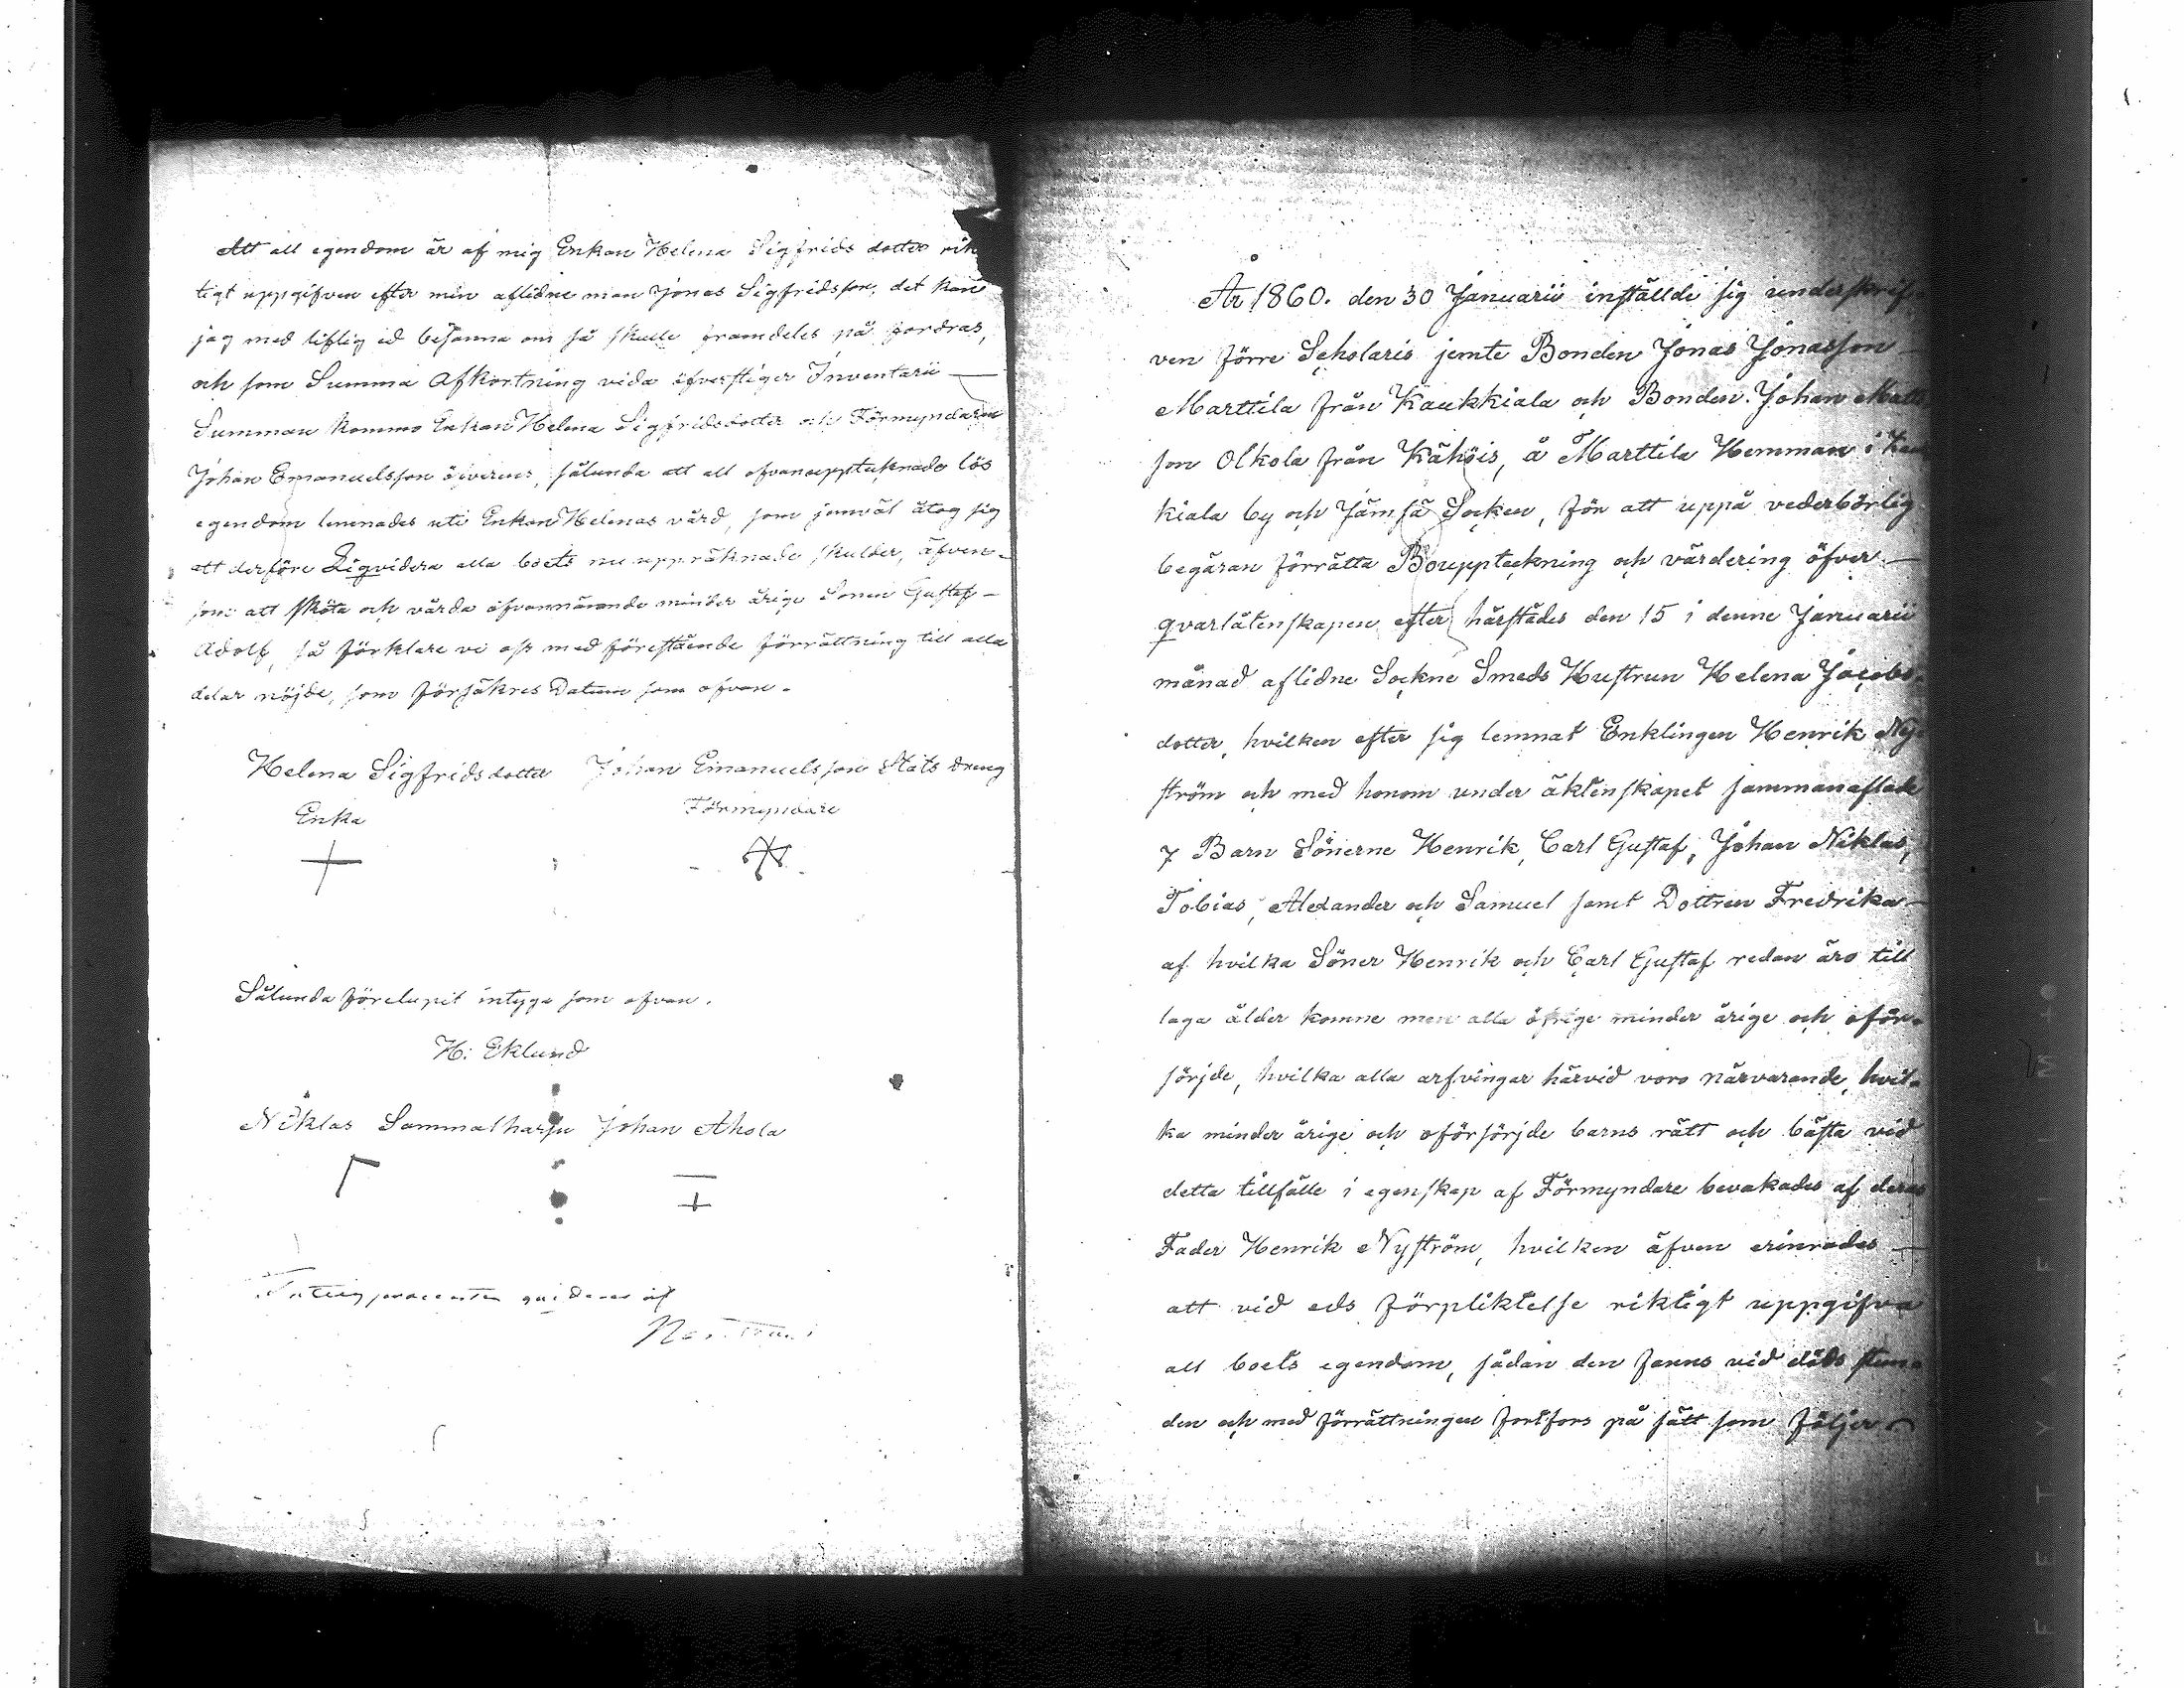 Att all egendom är af mig Enkan Helena Sigfrids dotter rik
tigt uppgifven efter min aflidne man Jonas Sigfridsson, det kan
jag med liflig ed besanna om så skulle framdeles på fordras,
och som Summa Afkortning vida öfverstiger Inventarii —
Summan kommo Enkan Helena Sigfridsdotter och Förmyndaren
Johan Emanuelsson öfverens, sålunda att all ofvanupptecknade lös
egendom lemnades uti Enkan Helenas vård, som jemväl åtog sig
att derföre Liqvidera alla boets nu uppräknade skulder, äfven-
som att sköta och vårda ofvannämnde minder årige Sonen Gustaf -
Adolf, så förklare vi oss med förestående förrättning till alla
delar nöjde, som försäkres Datum som ofvan.
Helena Sigfridsdotter Johan Emanuelsson Stats dreng
Enka Förmyndare
Sålunda förelupit intyga som ofvan.
H: Eklund
Niklas Sammalharju Johan Ahola
qvitteras af
År 1860. den 30 Januarii inställde sig underskrif
ven förre Scholaris jemte Bonden Jonas Jonasson —
Marttila från Kaukkiala och Bonden Johan Matts
son Olkola från Kähöis, å Marttila Hemman i Kau
kiala by och Jämsä Socken, för att uppå vederbörlig
begäran förrätta Bouppteckning och värdering öfver —
qvarlåtenskapen efter härstädes den 15 i denne Januarii
månad aflidne Sockne Smeds Hustrun Helena Jacobs-
dotter, hvilken efter sig lemnat Enklingen Henrik Ny-
ström och med honom under äktenskapet sammanaflade
7 Barn Sönerne Henrik, Carl Gustaf, Johan Niklas,
Tobias, Alexander och Samuel samt Dottren Fredrika —
af hvilka Söner Henrik och Carl Gustaf redan äro till
laga ålder komne men alla öfrige minder årige och oför-
sörjde, hvilka alla arfvingar härvid voro närvarande, hvil-
ka minder årige och oförsörjde barns rätt och bästa vid
detta tillfälle i egenskap af Förmyndare bevakades af deras
Fader Henrik Nyström, hvilken äfven erinrades —
att vid eds förpliktelse riktigt uppgifva
all boets egendom, sådan den fanns vid döds stun-
den och med förrättningen fortfors på sätt som följer
FETYAFILM OY